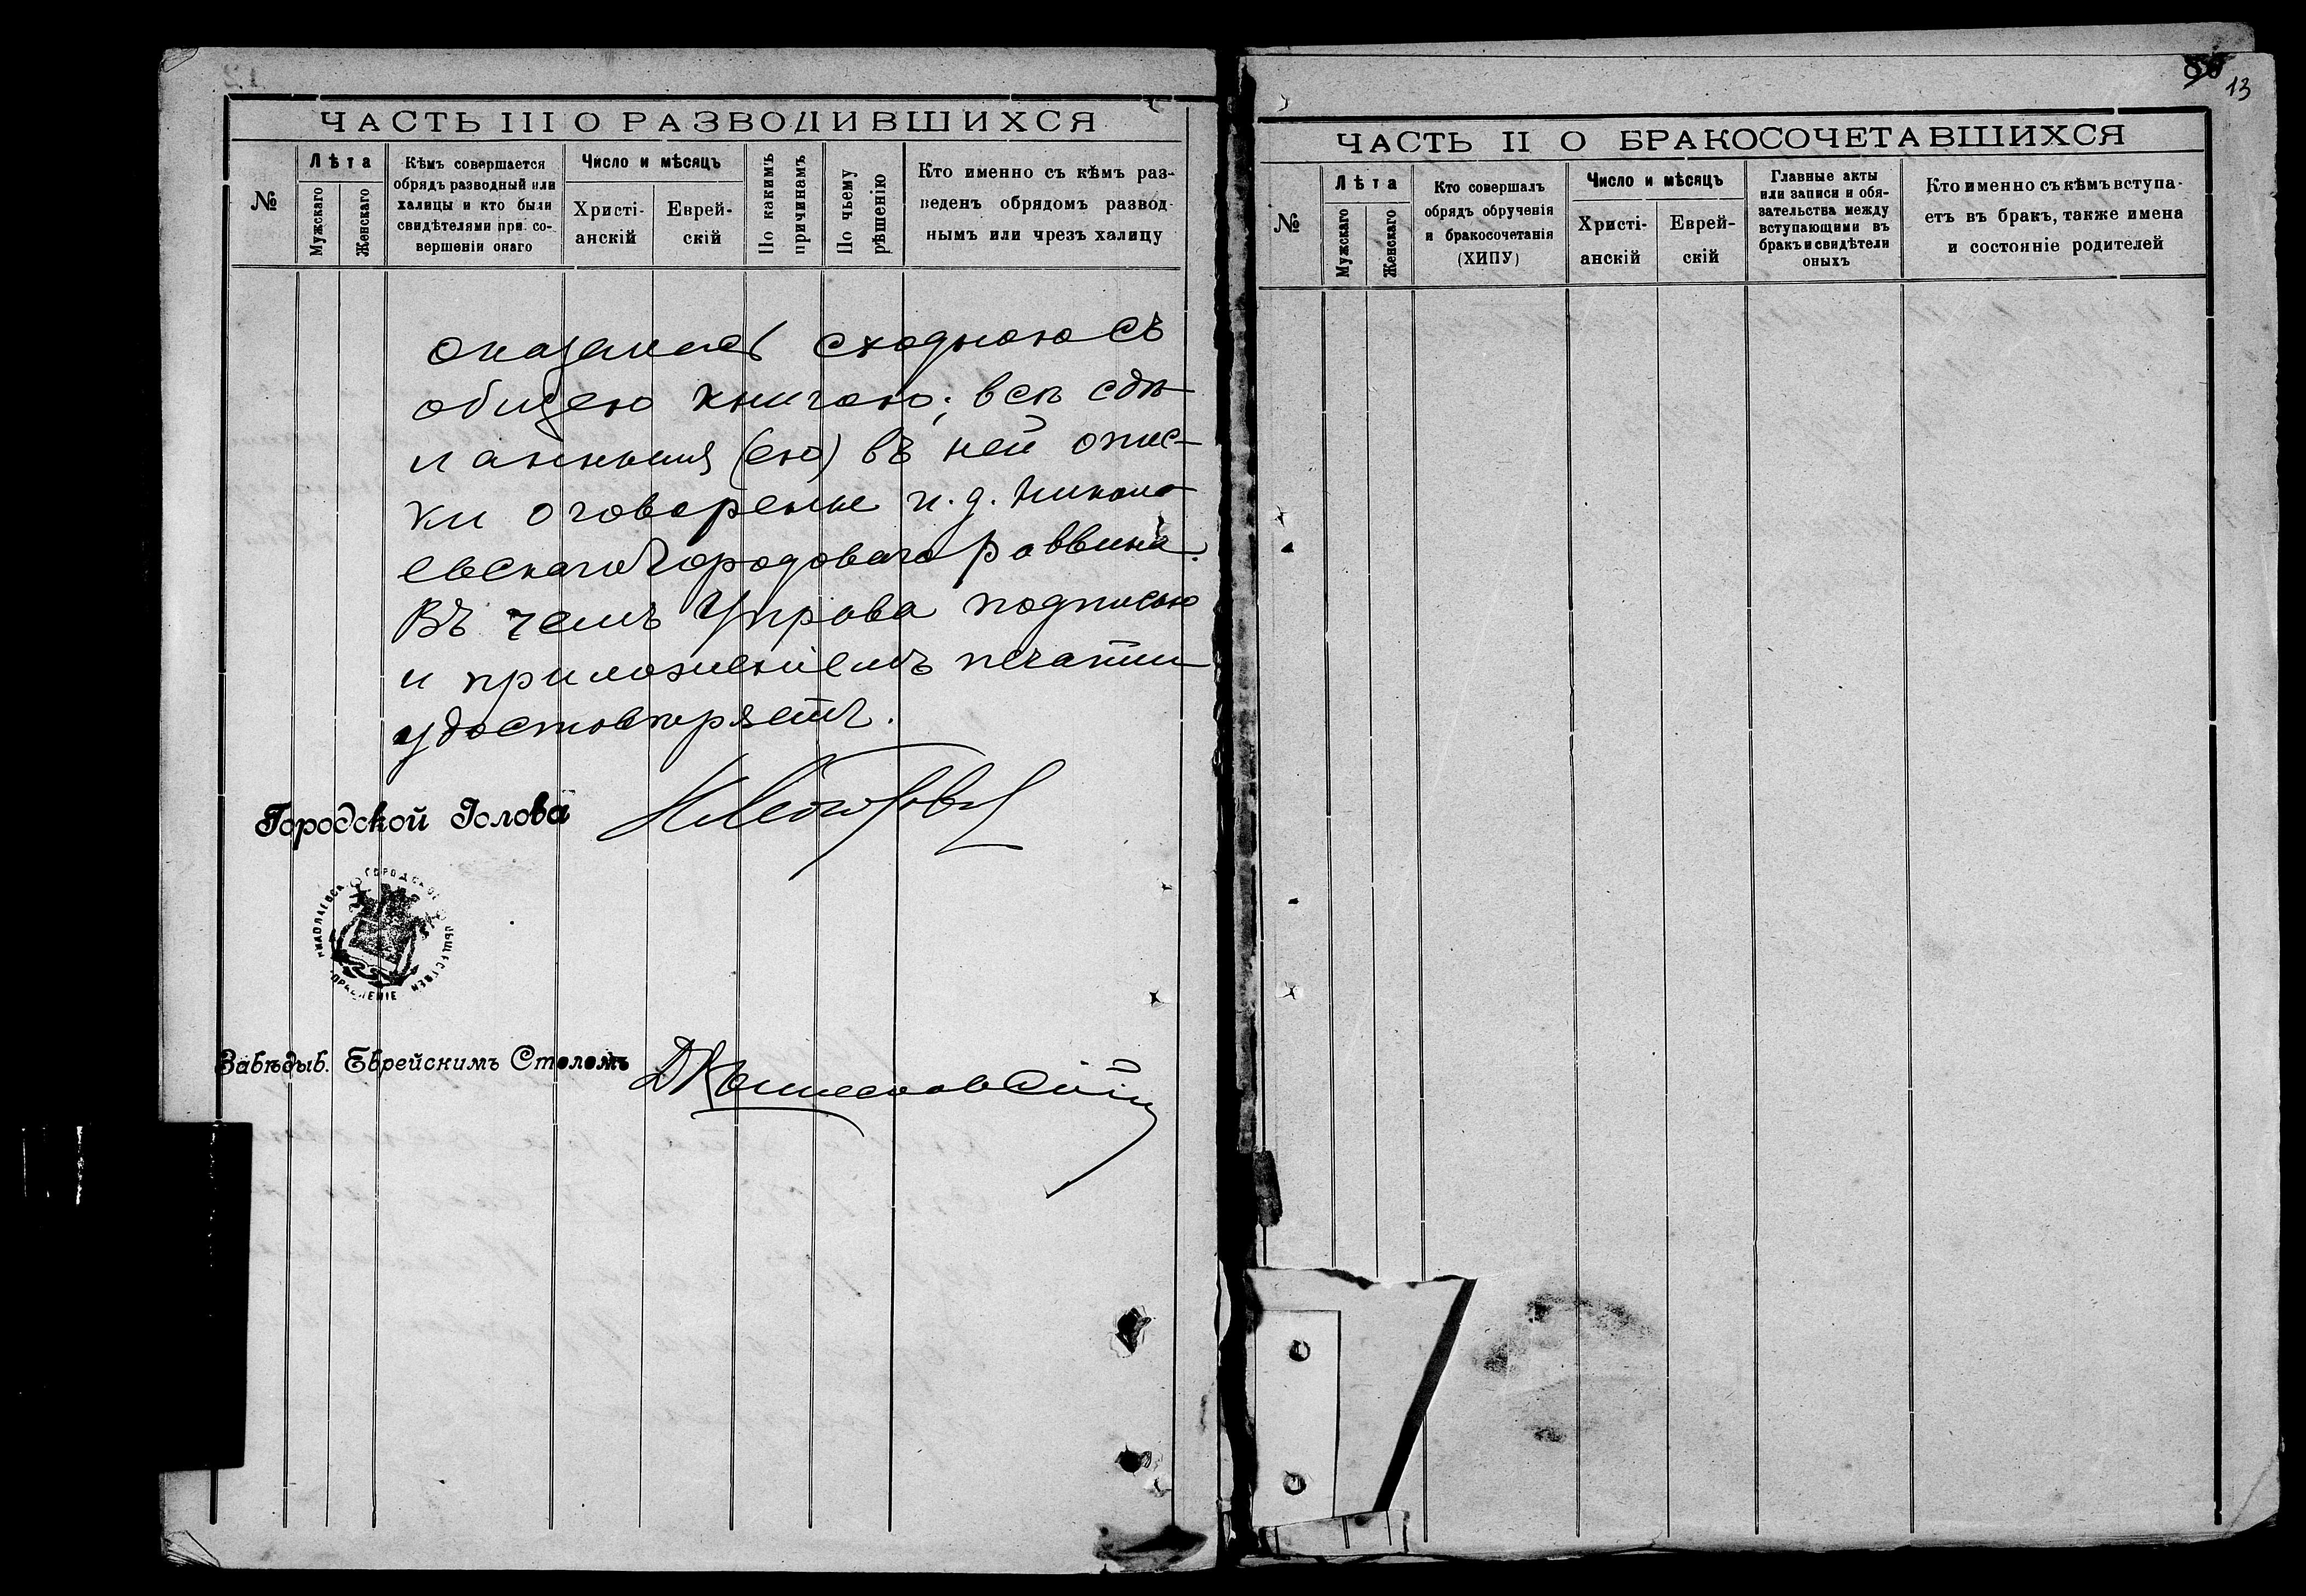 ЧАСТЬ III О РАЗВОДИВШИХСЯ
№
Лѣта
Мужскаго
Женскаго
Кѣмъ совершается
обрядъ разводный или
халицы и кто были
свидѣтелями при со-
вершеніи онаго
Число и мѣсяцъ
Христі-
анскій
Еврей-
скій
По какимъ
причинамъ
По чьему
рѣшенію
Кто именно съ кѣмъ раз-
веденъ обрядомъ развод-
нымъ или чрезъ халицу
оказалась сходною съ
общею книгою; всѣ сдѣ-
ланныя (ею) въ ней опис-
ки оговорены и. д. Никола-
евскаго Городоваго раввина.
Въ чемъ Управа подписью
и приложеніемъ печати
удостовѣряетъ.
Городской Голова
НИКОЛАЕВСК ГОРОДСКОЕ ОБЩЕСТВЕН УПРАВЛЕНІЕ
Завѣдыв. Еврейскимъ Столомъ
13
ЧАСТЬ II О БРАКОСОЧЕТАВШИХСЯ
№
Лѣта
Мужскаго
Женскаго
Кто совершалъ
обрядъ обрученія
и бракосочетанія
(ХИПУ)
Число и мѣсяцъ
Христі-
анскій
Еврей-
скій
Главные акты
или записи и обя-
зательства между
вступающими въ
бракъ и свидѣтели
оныхъ
Кто именно съ кѣмъ вступа-
етъ въ бракъ, также имена
и состояніе родителей